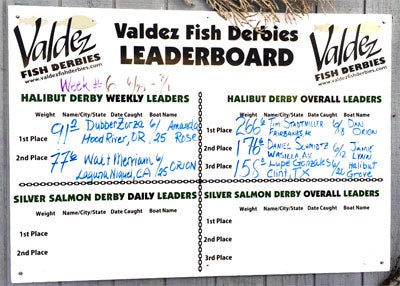 Valdez
FISH DERBIES
www.valdezfishderbies.com
Valdez Fish Derbies
LEADERBOARD
Valdez
FISH DERBIES
www.valdezfishderbies.com
Week #6
HALIBUT DERBY WEEKLY LEADERS
Weight Name/City/State Date Caught Boat Name
1st Place Dubber Zorza 6/25 Amanda Rose
Hood River, OR
2nd Place Walt Merriam 6/25 ORION
Laguna Niguel, CA
HALIBUT DERBY OVERALL LEADERS
Weight Name/City/State Date Caught Boat Name
1st Place Tim Stadtmiller 6/18 Dan Orion
Fairbanks, AK
2nd Place Daniel Schmidtz 6/12 Jamie Lynn
Wasilla, AK
3rd Place Lupe Gonzales 6/22 Halibut Grove
Clint, TX
SILVER SALMON DERBY DAILY LEADERS
Weight Name/City/State Date Caught Boat Name
1st Place
2nd Place
SILVER SALMON DERBY OVERALL LEADERS
Weight Name/City/State Date Caught Boat Name
1st Place
2nd Place
3rd Place